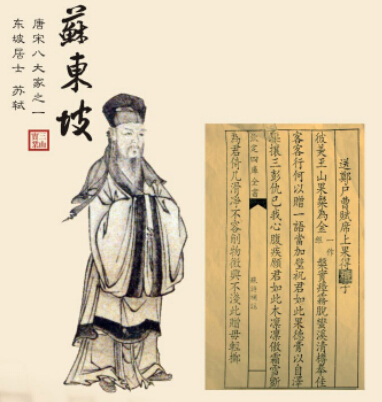 蘇東坡
唐宋八大家之一
东坡居士 苏轼
送鄭戶曹賦席上果得子
彼美王山果粲為金 一作 盤實瘴霧脫蠻溪清樽奉佳
客客行何以贈一語當加璧祝君如此果德膏以自澤
驅攘三彭仇已我心腹疾願君如此木凜凜傲霜雪斲
欽定四庫全書 蘇詩補註
為君倚几滑淨不容削物微興不淺此贈毋輕擲